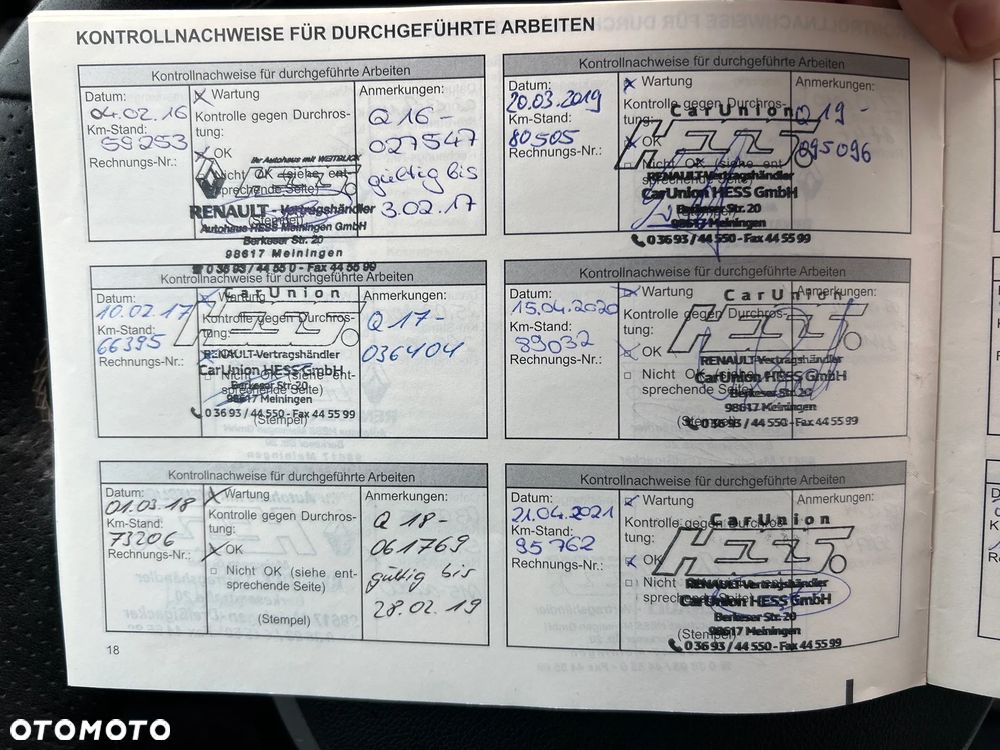 KONTROLLNACHWEISE FÜR DURCHGEFÜHRTE ARBEITEN
Kontrollnachweise für durchgeführte Arbeiten
Datum:
04.02.16
Km-Stand:
59253
Rechnungs-Nr.:
Wartung
Kontrolle gegen Durchros-
tung:
OK
Nicht OK (siehe ent-
sprechende Seite)
(Stempel)
Ihr Autohaus mit WEITBLICK
RENAULT - Vertragshändler
Autohaus HESS Meiningen GmbH
Berkeser Str. 20
98617 Meiningen
☎ 0 36 93 / 44 55 0 - Fax 44 55 99
Anmerkungen:
Q 16 -
027547
gültig bis
3.02.17
Kontrollnachweise für durchgeführte Arbeiten
Datum:
10.02.17
Km-Stand:
66395
Rechnungs-Nr.:
Wartung
Kontrolle gegen Durchros-
tung:
OK
Nicht OK (siehe ent-
sprechende Seite)
(Stempel)
CarUnion
HESS
RENAULT-Vertragshändler
CarUnion HESS GmbH
Berkeser Str. 20
98617 Meiningen
0 36 93 / 44 550 - Fax 44 55 99
Anmerkungen:
Q 17-
036404
Kontrollnachweise für durchgeführte Arbeiten
Datum:
01.03.18
Km-Stand:
73206
Rechnungs-Nr.:
Wartung
Kontrolle gegen Durchros-
tung:
OK
Nicht OK (siehe ent-
sprechende Seite)
(Stempel)
Anmerkungen:
Q 18-
061769
gültig bis
28.02.19
Kontrollnachweise für durchgeführte Arbeiten
Datum:
20.03.2019
Km-Stand:
80505
Rechnungs-Nr.:
Wartung
Kontrolle gegen Durchros-
tung:
OK
Nicht OK (siehe ent-
sprechende Seite)
CarUnion
HESS
RENAULT-Vertragshändler
CarUnion HESS GmbH
Berkeser Str. 20
98617 Meiningen
0 36 93 / 44 550 - Fax 44 55 99
Anmerkungen:
Q 19 -
095096
Kontrollnachweise für durchgeführte Arbeiten
Datum:
15.04.2020
Km-Stand:
89032
Rechnungs-Nr.:
Wartung
Kontrolle gegen Durchros-
tung:
OK
Nicht OK (siehe ent-
sprechende Seite)
(Stempel)
CarUnion
HESS
RENAULT-Vertragshändler
CarUnion HESS GmbH
Berkeser Str. 20
98617 Meiningen
0 36 93 / 44 550 - Fax 44 55 99
Anmerkungen:
Kontrollnachweise für durchgeführte Arbeiten
Datum:
21.04.2021
Km-Stand:
95762
Rechnungs-Nr.:
Wartung
Kontrolle gegen Durchros-
tung:
OK
Nicht OK (siehe ent-
sprechende Seite)
(Stempel)
CarUnion
HESS
RENAULT-Vertragshändler
CarUnion HESS GmbH
Berkeser Str. 20
98617 Meiningen
0 36 93 / 44 550 - Fax 44 55 99
Anmerkungen:
18
OTOMOTO